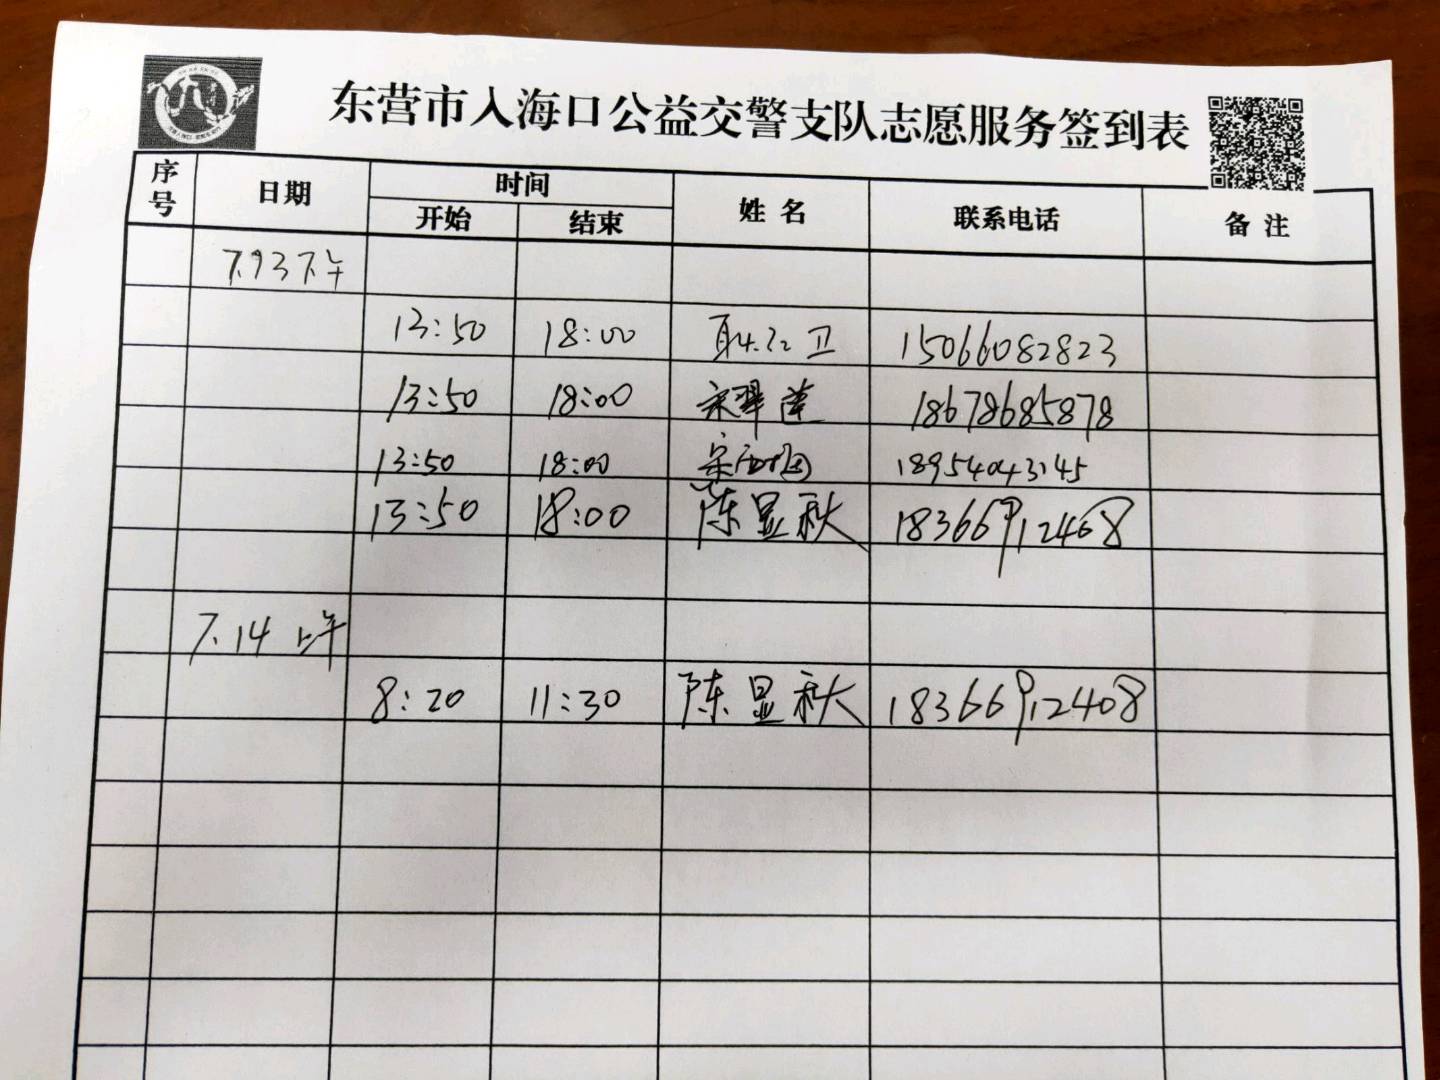 东营市入海口公益交警支队志愿服务签到表
序号 日期 时间 姓名 联系电话 备注
开始 结束
7.13下午
13:50 18:00 卫 15066082823
13:50 18:00 宋翠莲 18678685878
13:50 18:00 18954043145
13:50 18:00 陈显秋 18366912408
7.14 上午
8:20 11:30 陈显秋 18366912408